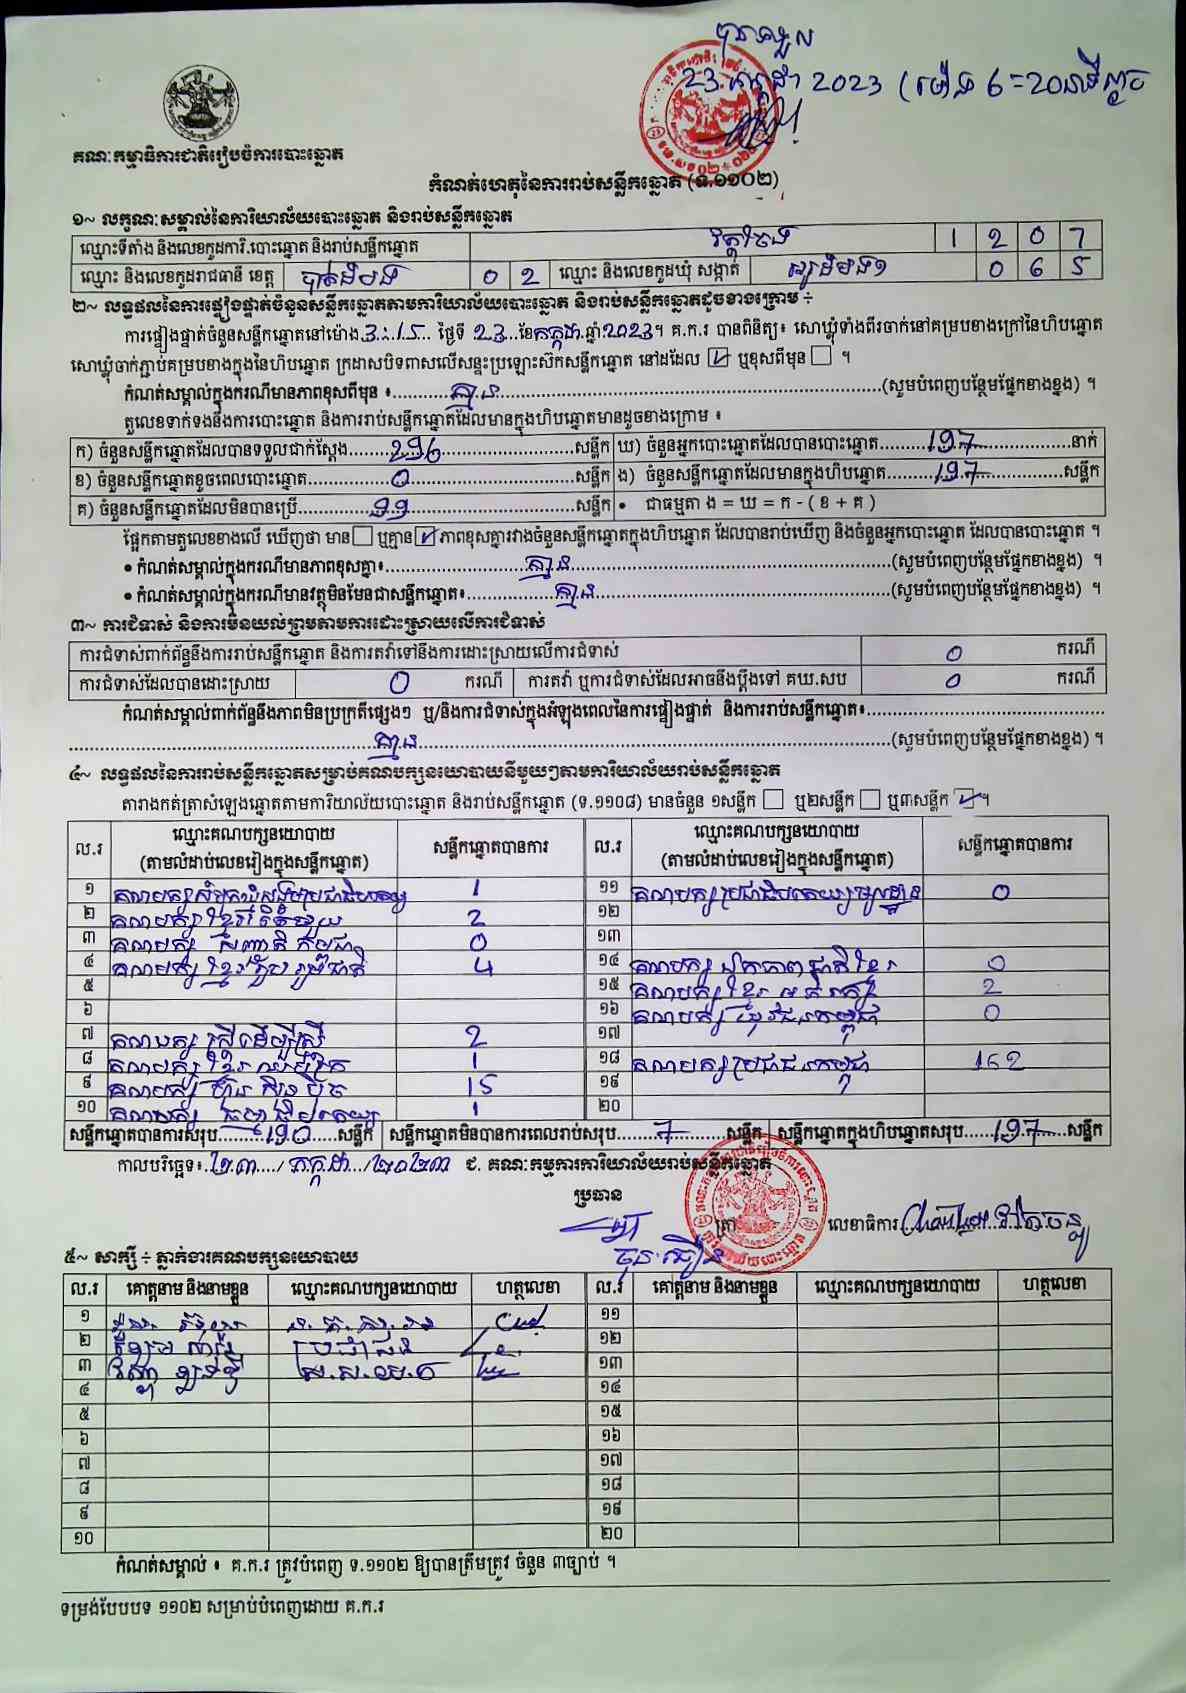 បានទទួល
23 កក្កដា 2023 (ម៉ោង 6=20នាទីល្ងាច
គណៈកម្មាធិការជាតិរៀបចំការបោះឆ្នោត
កំណត់ហេតុនៃការរាប់សន្លឹកឆ្នោត (ទ.១១០២)
១~ លក្ខណៈសម្គាល់នៃការិយាល័យបោះឆ្នោត និងរាប់សន្លឹកឆ្នោត
ឈ្មោះទីតាំង និងលេខកូដការិ.បោះឆ្នោត និងរាប់សន្លឹកឆ្នោត 1 2 0 7
ឈ្មោះ និងលេខកូដរាជធានី ខេត្ត បាត់ដំបង 0 2 ឈ្មោះ និងលេខកូដឃុំ សង្កាត់ អូរដំបង១ 0 6 5
២~ លទ្ធផលនៃការផ្ទៀងផ្ទាត់ចំនួនសន្លឹកឆ្នោតតាមការិយាល័យបោះឆ្នោត និងរាប់សន្លឹកឆ្នោតដូចខាងក្រោម ÷
ការផ្ទៀងផ្ទាត់ចំនួនសន្លឹកឆ្នោតនៅម៉ោង 3:15 ថ្ងៃទី 23 ខែកក្កដា ឆ្នាំ2023។ គ.ក.រ បានពិនិត្យ៖ សោឃ្លុំទាំងពីរចាក់នៅគម្របខាងក្រៅនៃហិបឆ្នោត
សោឃ្លុំចាក់ភ្ជាប់គម្របខាងក្នុងនៃហិបឆ្នោត ក្រដាសបិទពាសលើសន្ទះប្រឡោះស៊កសន្លឹកឆ្នោត នៅដដែល ☑ ឬខុសពីមុន ☐ ។
កំណត់សម្គាល់ក្នុងករណីមានភាពខុសពីមុន ៖ គ្មាន (សូមបំពេញបន្ថែមផ្នែកខាងខ្នង) ។
តួលេខទាក់ទងនឹងការបោះឆ្នោត និងការរាប់សន្លឹកឆ្នោតដែលមានក្នុងហិបឆ្នោតមានដូចខាងក្រោម ៖
ក) ចំនួនសន្លឹកឆ្នោតដែលបានទទួលជាក់ស្តែង 296 សន្លឹក ឃ) ចំនួនអ្នកបោះឆ្នោតដែលបានបោះឆ្នោត 197 នាក់
ខ) ចំនួនសន្លឹកឆ្នោតខូចពេលបោះឆ្នោត 0 សន្លឹក ង) ចំនួនសន្លឹកឆ្នោតដែលមានក្នុងហិបឆ្នោត 197 សន្លឹក
គ) ចំនួនសន្លឹកឆ្នោតដែលមិនបានប្រើ 99 សន្លឹក • ជាធម្មតា ង = ឃ = ក - ( ខ + គ )
ផ្អែកតាមតួលេខខាងលើ ឃើញថា មាន ☐ ឬគ្មាន ☑ ភាពខុសគ្នារវាងចំនួនសន្លឹកឆ្នោតក្នុងហិបឆ្នោត ដែលបានរាប់ឃើញ និងចំនួនអ្នកបោះឆ្នោត ដែលបានបោះឆ្នោត ។
• កំណត់សម្គាល់ក្នុងករណីមានភាពខុសគ្នា៖ គ្មាន (សូមបំពេញបន្ថែមផ្នែកខាងខ្នង) ។
• កំណត់សម្គាល់ក្នុងករណីមានវត្ថុមិនមែនជាសន្លឹកឆ្នោត៖ គ្មាន (សូមបំពេញបន្ថែមផ្នែកខាងខ្នង) ។
៣~ ការជំទាស់ និងការមិនយល់ព្រមតាមការដោះស្រាយលើការជំទាស់
ការជំទាស់ពាក់ព័ន្ធនឹងការរាប់សន្លឹកឆ្នោត និងការតវ៉ាទៅនឹងការដោះស្រាយលើការជំទាស់ 0 ករណី
ការជំទាស់ដែលបានដោះស្រាយ 0 ករណី ការតវ៉ា ឬការជំទាស់ដែលអាចនឹងប្តឹងទៅ គឃ.សប 0 ករណី
កំណត់សម្គាល់ពាក់ព័ន្ធនឹងភាពមិនប្រក្រតីផ្សេងៗ ឬ/និងការជំទាស់ក្នុងអំឡុងពេលនៃការផ្ទៀងផ្ទាត់ និងការរាប់សន្លឹកឆ្នោត៖
គ្មាន (សូមបំពេញបន្ថែមផ្នែកខាងខ្នង) ។
៤~ លទ្ធផលនៃការរាប់សន្លឹកឆ្នោតសម្រាប់គណបក្សនយោបាយនីមួយៗតាមការិយាល័យរាប់សន្លឹកឆ្នោត
តារាងកត់ត្រាសំឡេងឆ្នោតតាមការិយាល័យបោះឆ្នោត និងរាប់សន្លឹកឆ្នោត (ទ.១១០៨) មានចំនួន ១សន្លឹក ☐ ឬ២សន្លឹក ☐ ឬ៣សន្លឹក ☑។
ល.រ ឈ្មោះគណបក្សនយោបាយ (តាមលំដាប់លេខរៀងក្នុងសន្លឹកឆ្នោត) សន្លឹកឆ្នោតបានការ ល.រ ឈ្មោះគណបក្សនយោបាយ (តាមលំដាប់លេខរៀងក្នុងសន្លឹកឆ្នោត) សន្លឹកឆ្នោតបានការ
១ គណបក្សសំបុកឃ្មុំសង្គមប្រជាធិបតេយ្យ 1 ១១ គណបក្សប្រជាធិបតេយ្យមូលដ្ឋាន 0
២ គណបក្សខ្មែររួបរួម 2 ១២
៣ គណបក្ស សញ្ជាតិកម្ពុជា 0 ១៣
៤ គណបក្ស ខ្មែររួបរួមជាតិ 4 ១៤ គណបក្ស ឯកភាពជាតិខ្មែរ 0
៥ ១៥ គណបក្សខ្មែរអភិរក្ស 2
៦ ១៦ គណបក្ស យុវជនកម្ពុជា 0
៧ គណបក្ស ស្រ្តីដើម្បីស្រ្តី 2 ១៧
៨ គណបក្ស ខ្មែរឈប់ក្រ 1 ១៨ គណបក្សប្រជាជនកម្ពុជា 162
៩ គណបក្ស ហ៊្វុនស៊ិនប៉ិច 15 ១៩
១០ គណបក្ស ធម្មាធិបតេយ្យ 1 ២០
សន្លឹកឆ្នោតបានការសរុប 190 សន្លឹក សន្លឹកឆ្នោតមិនបានការពេលរាប់សរុប 7 សន្លឹក សន្លឹកឆ្នោតក្នុងហិបឆ្នោតសរុប 197 សន្លឹក
កាលបរិច្ឆេទ៖ ២៣ / កក្កដា / ២០២៣ ជ. គណៈកម្មការការិយាល័យរាប់សន្លឹកឆ្នោត
ប្រធាន
ត្រា លេខាធិការ
៥~ សាក្សី ÷ ភ្នាក់ងារគណបក្សនយោបាយ
ល.រ គោត្តនាម និងនាមខ្លួន ឈ្មោះគណបក្សនយោបាយ ហត្ថលេខា ល.រ គោត្តនាម និងនាមខ្លួន ឈ្មោះគណបក្សនយោបាយ ហត្ថលេខា
១ ១១
២ ប្រជាជន ១២
៣ ១៣
៤ ១៤
៥ ១៥
៦ ១៦
៧ ១៧
៨ ១៨
៩ ១៩
១០ ២០
កំណត់សម្គាល់ ៖ គ.ក.រ ត្រូវបំពេញ ទ.១១០២ ឱ្យបានត្រឹមត្រូវ ចំនួន ៣ច្បាប់ ។
ទម្រង់បែបបទ ១១០២ សម្រាប់បំពេញដោយ គ.ក.រ